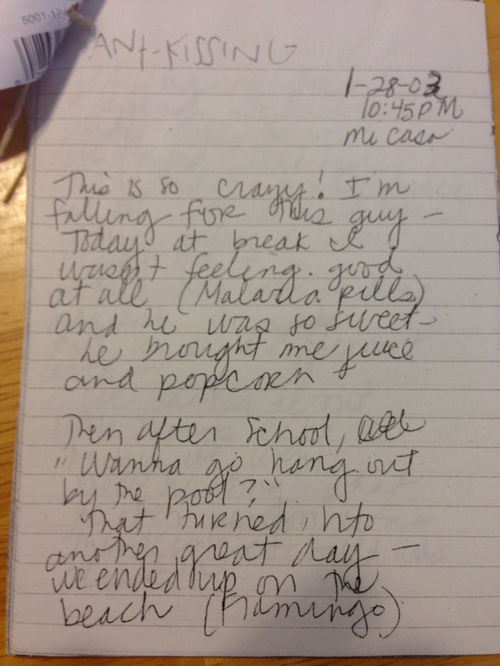 5001-17
ANt-KISSING
1-28-03
10:45PM
mi casa
This is so crazy! I'm
falling for this guy -
Today at break I
wasn't feeling good
at all (Malaria pills)
and he was so sweet-
he brought me juice
and popcorn
Then after school,
"Wanna go hang out
by the pool?"
That turned into
another great day -
we ended up on the
beach (Flamingo)